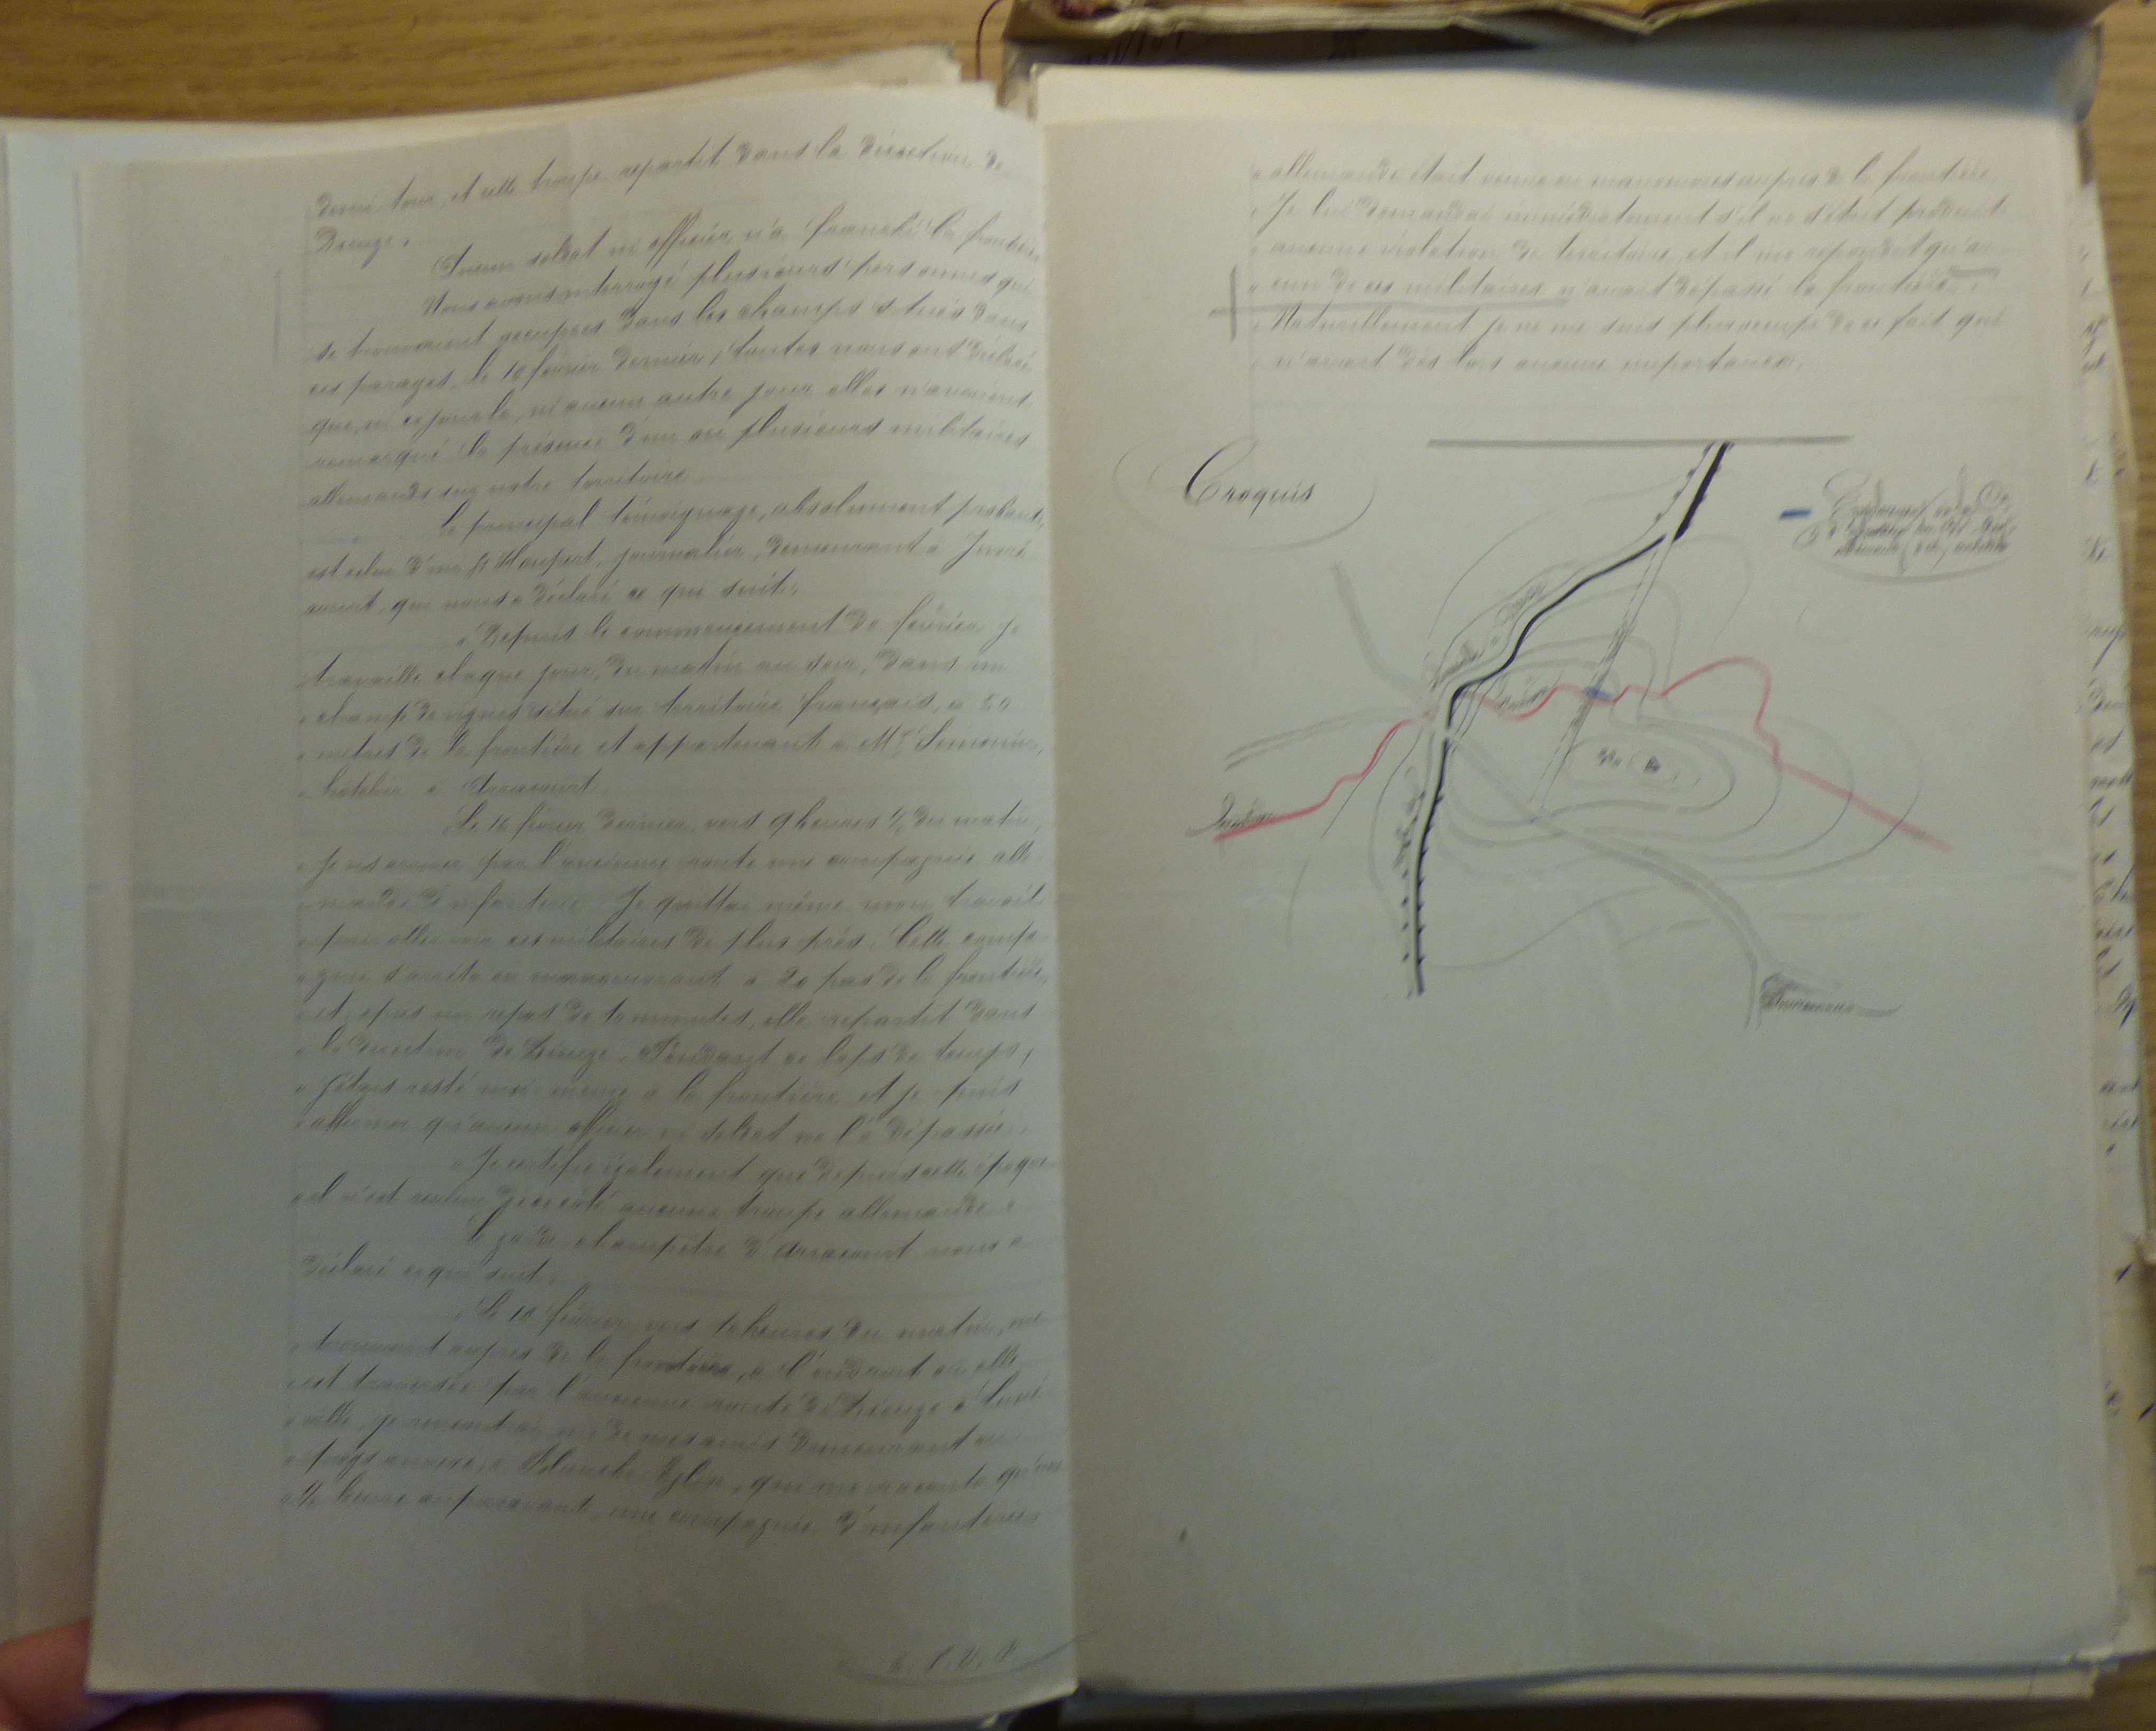 demi-tour, et cette troupe repartit dans la direction de
Dieuze.
Aucun soldat ni officier n'a franchi la frontière.
Nous avons interrogé plusieurs personnes qui
se trouvaient occupées dans les champs situés dans
ces parages, le 10 février dernier, toutes nous ont déclaré
que, ni ce jour-là, ni aucun autre jour elles n'avaient
remarqué la présence d'un ou plusieurs militaires
allemands sur notre territoire.
Le principal témoignage, absolument probant,
est celui d'un Sr Haupert, journalier, demeurant à
court, qui nous a déclaré ce qui suit:
« Depuis le commencement de février je
travaille chaque jour, du matin au soir, dans un
« champ de vignes situé sur territoire français, à 50
« mètres de la frontière et appartenant à Mr Simonin,
« hôtelier à Arracourt.
« Le 10 février dernier, vers 9 heures ½ du matin,
« je vis arriver par l'ancienne route une compagnie alle-
« mande d'infanterie. Je quittai même mon travail
« pour aller voir ces militaires de plus près. Cette compa-
« gnie s'arrêta en manoeuvrant à 20 pas de la frontière
« et, après un repos de 10 minutes, elle repartit dans
« la direction de Dieuze. Pendant ce laps de temps,
« j'étais resté moi-même à la frontière et je puis
« affirmer qu'aucun officier ni soldat ne l'a dépassée.
« Je certifie également que depuis cette époque
« il n'est revenu de ce côté aucune troupe allemande. »
Le garde champêtre d'Arracourt nous a
déclaré ce qui suit:
« Le 10 février, vers 10 heures du matin, me
« trouvant auprès de la frontière, à l'endroit où elle
« est traversée par l'ancienne route de Dieuze à Luné-
« ville, je rencontrai un de mes amis demeurant en
« pays annexé, à Blanche Eglise, qui me raconta qu'une
« ½ heure auparavant, une compagnie d'infanterie
T. S. V. P.
« allemande était venue en manoeuvres auprès de la frontière.
« Je lui demandai immédiatement s'il ne s'était produit
« aucune violation de territoire, et il me répondit qu'au-
« cun de ces militaires n'avait dépassé la frontière.
« Naturellement je ne me suis plus occupé de ce fait qui
« n'avait dès lors aucune importance.
Croquis